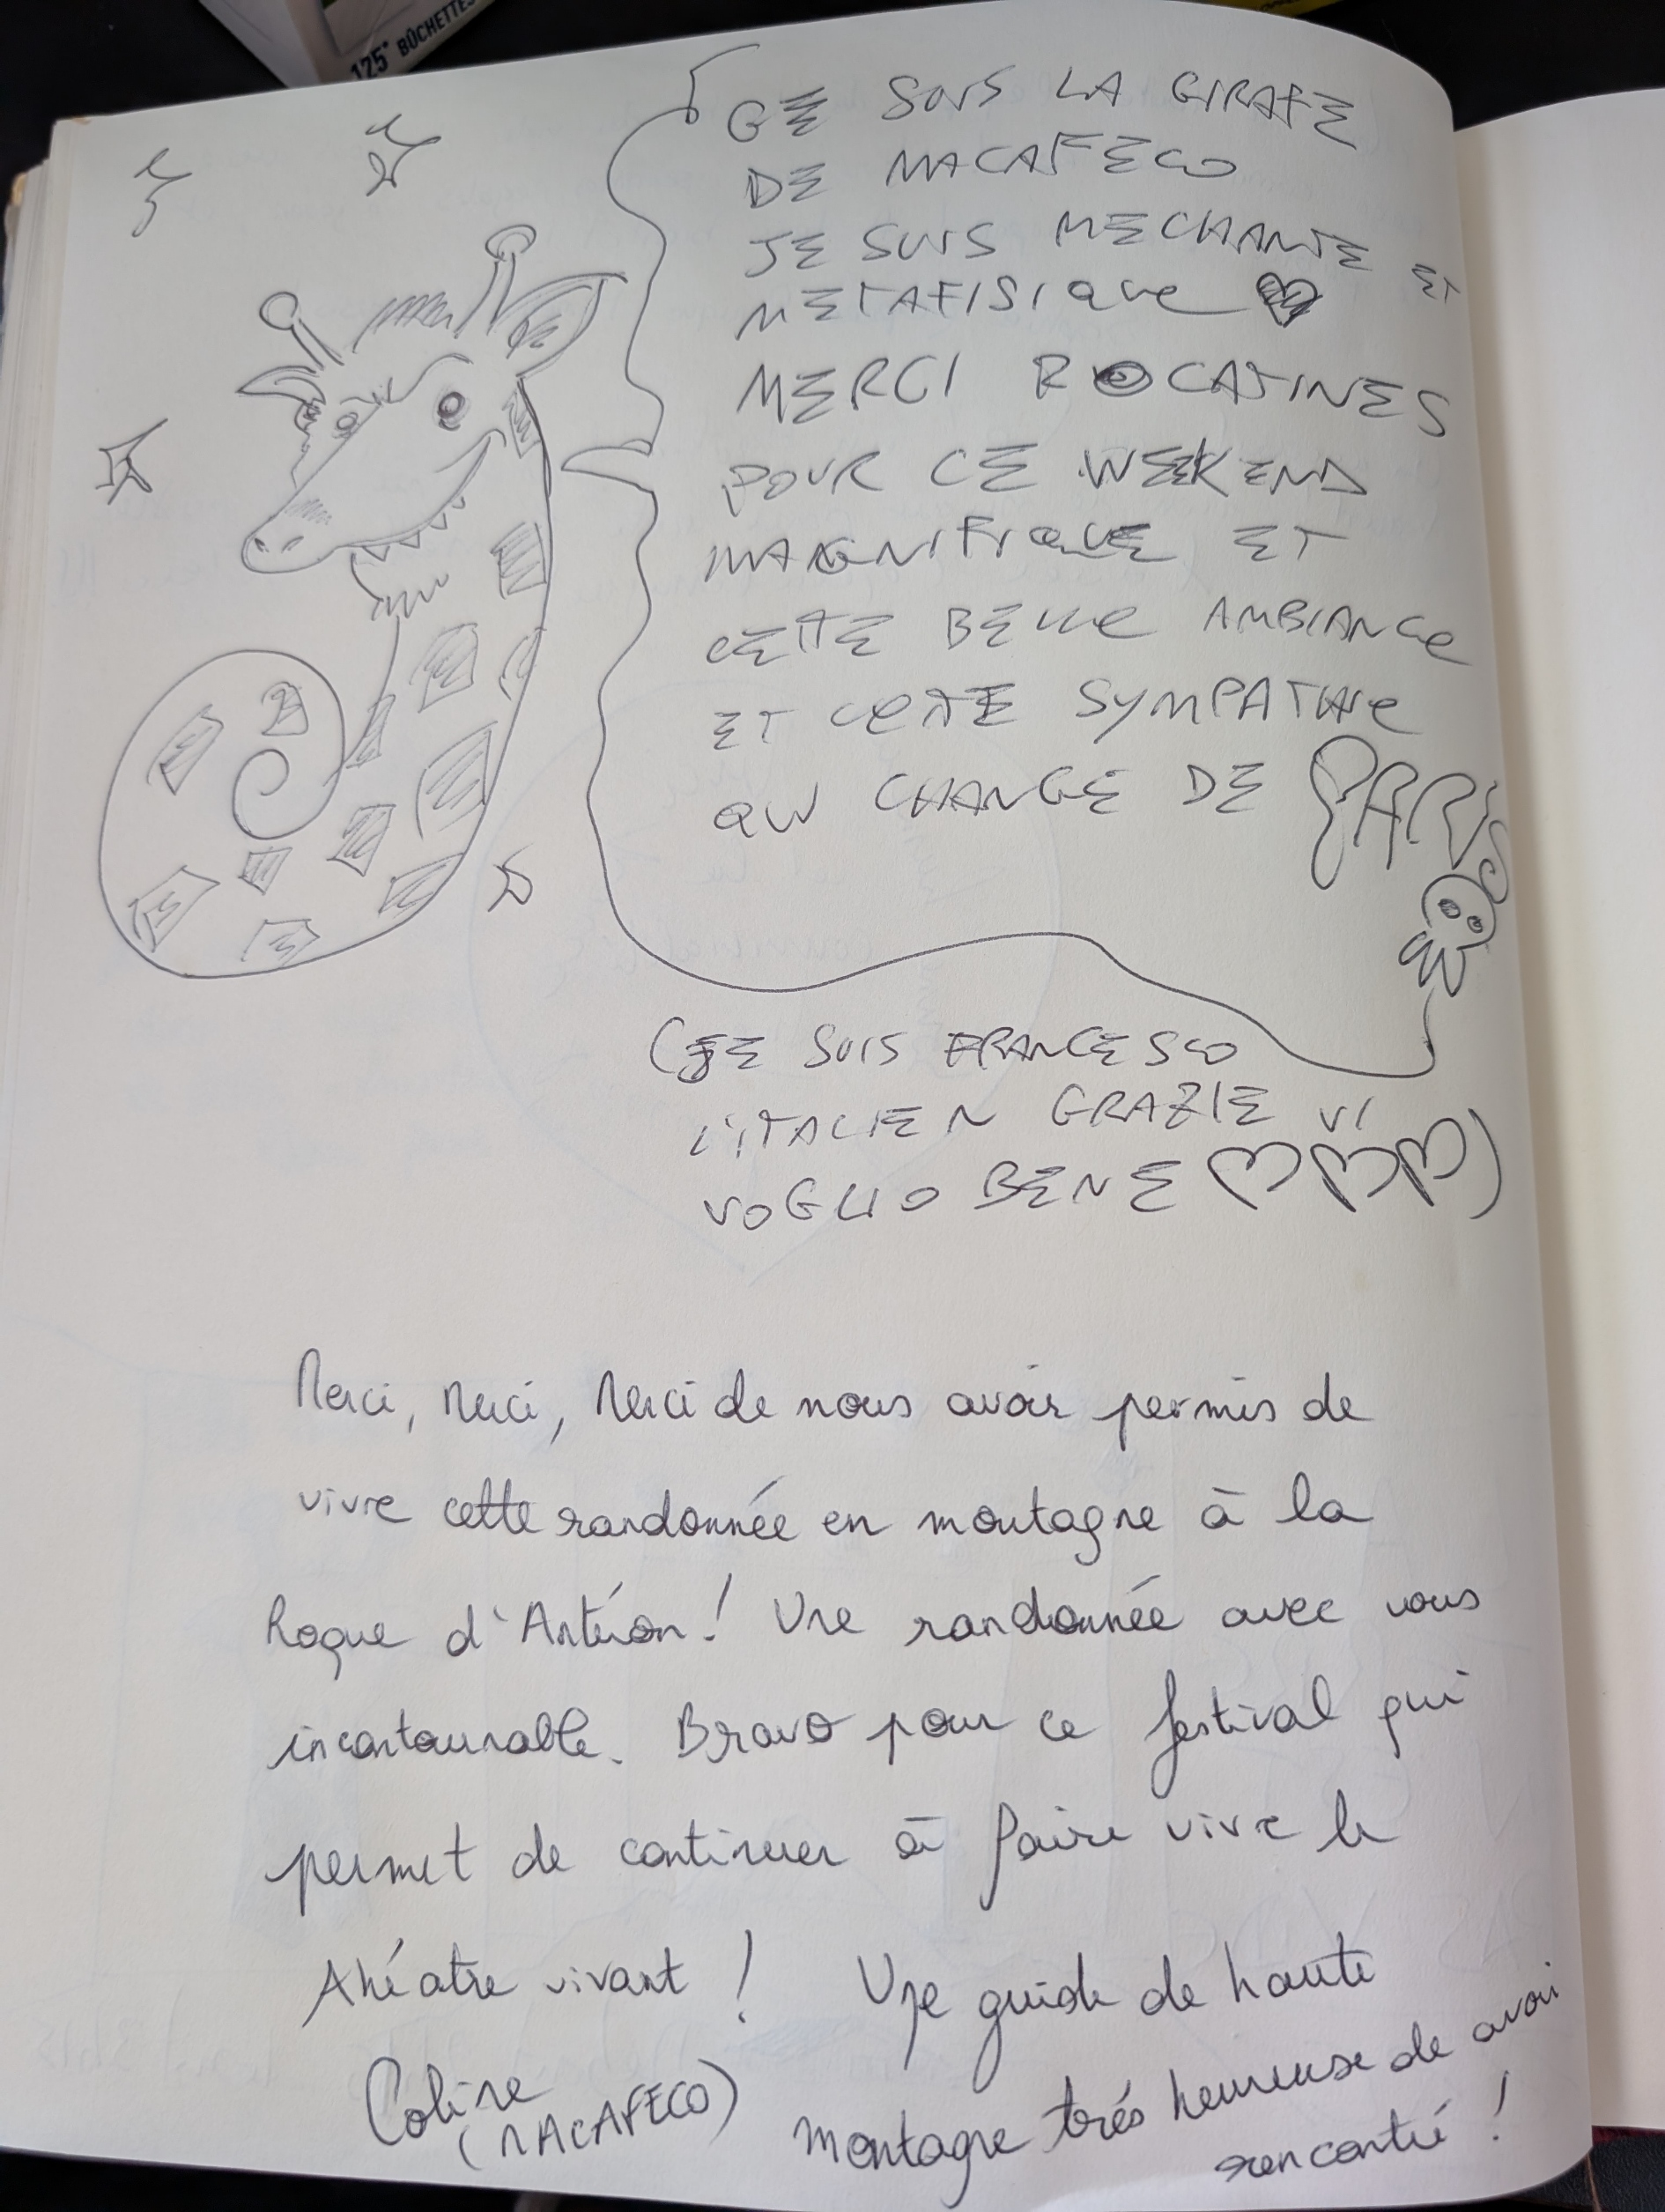 125 BÛCHETTES
GE SUIS LA GIRAFE
DE MACAFECO
JE SUIS MECHANTE ET
METAFISIQUE
MERCI ROCASINES
POUR CE WEEKEND
MAGNIFIQUE ET
CETTE BELLE AMBIANCE
ET CETTE SYMPATHIE
QUI CHANGE DE PARIS
(JE SUIS FRANCESCO
L'ITALIEN GRAZIE VI
VOGLIO BENE )
Merci, Merci, Merci de nous avoir permis de
vivre cette randonnée en montagne à la
Roque d'Antéron! Une randonnée avec vous
incontournable. Bravo pour ce festival qui
permet de continuer à faire vivre le
théatre vivant ! Une guide de haute
montagne trés heureuse de avoir
rencontré !
Coline
(MACAFECO)